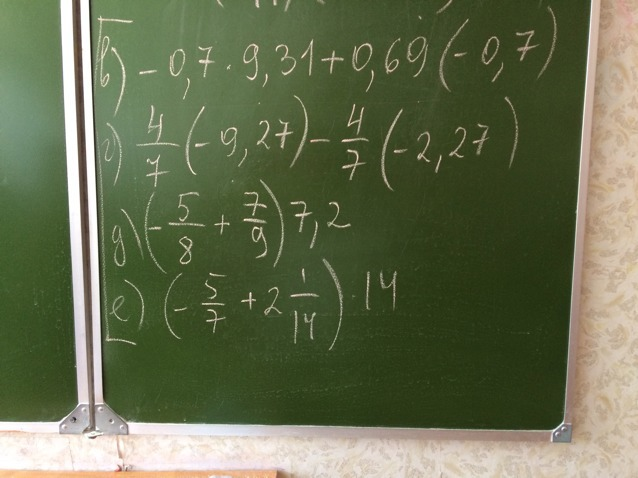 в) -0,7 · 9,31 + 0,69 (-0,7)
г) 4/7 (-9,27) - 4/7 (-2,27)
д) (-5/8 + 7/9) 7,2
е) (-5/7 + 2 1/14) · 14